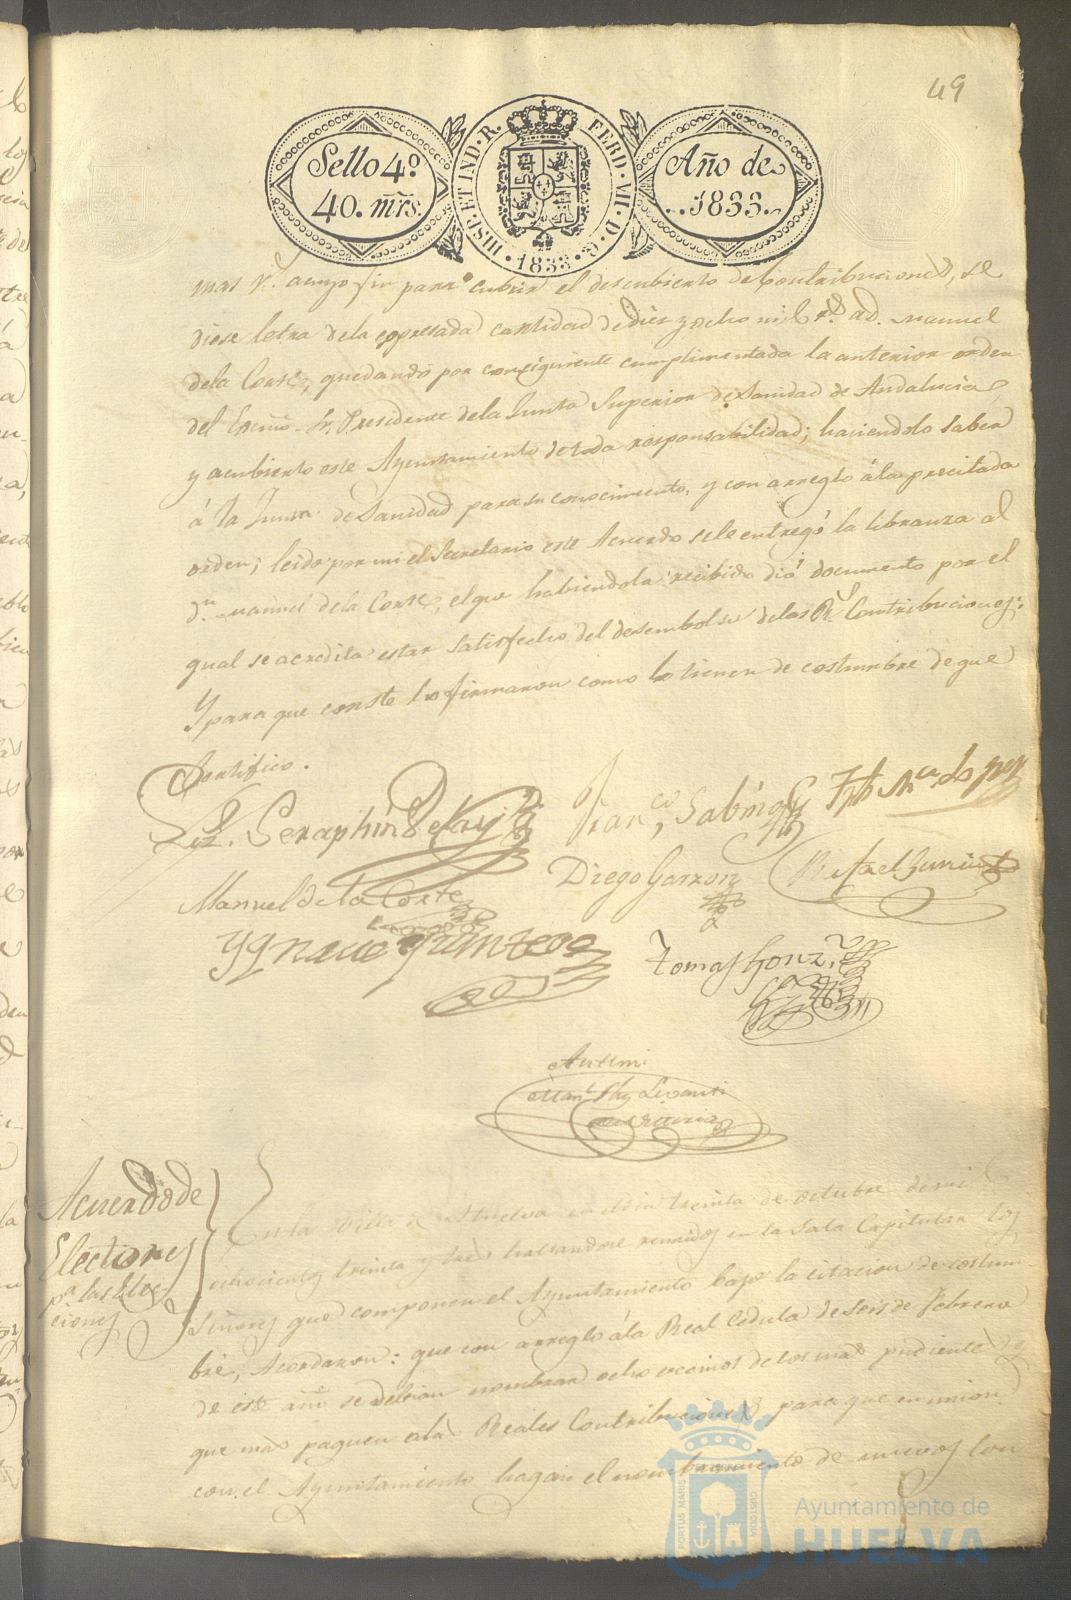 49
Sello 4.º
40. mrs.
HISP. ET IND. R. FERD. VII. D. G.
1833
Año de
1833.
mas V.ⁿ a cuyo fin para cubrir el descubierto de Contribuciones, se
diese letra dela expresada cantidad de diez y ocho mil r.ˢ á d. Manuel
dela Corte, quedando por consiguiente cumplimentada la anterior orden
del Excmo. Sr. Presidente dela Junta Superior de Sanidad de Andalucia,
y acubierto este Ayuntamiento de toda responsabilidad; haciendolo saber
á la Junta de Sanidad para su conocimiento, y con arreglo á la precitada
orden; leido por mi el Secretario este Acuerdo se le entregó la libranza al
d.ⁿ Manuel dela Corte, el que habiendola recibido dió documento por el
qual se acredita estar satisfecho del desembolso delas R.ˢ Contribuciones;
Y para que conste lo firmaron como lo tienen de costumbre de que
Certifico.
Liz. Seraphin De
Fran.co Sabing
Manuel de la Corte
Diego Garzon
Rafael
Ygnacio Quintero
Tomas Gonz.
Antemi
Man.l
Acuerdo de
Electiones
p.ª las Elec-
ciones
En la Villa de Huelva en el dia treinta de octubre de mil
ochocientos treinta y tres hallandose reunidos en la Sala Capitular los
Señores que componen el Ayuntamiento bajo la citacion de costum-
bre, Acordaron: que con arreglo á la Real Cedula de Seis de Febrero
de este año se debian nombrar ocho vecinos de los mas pudientes
que mas paguen alas Reales Contribuciones para que en union
con el Ayuntamiento hagan el nombramiento de nuevos Con
PORTUS MARIS
CUSTODIA
Ayuntamiento de
HUELVA